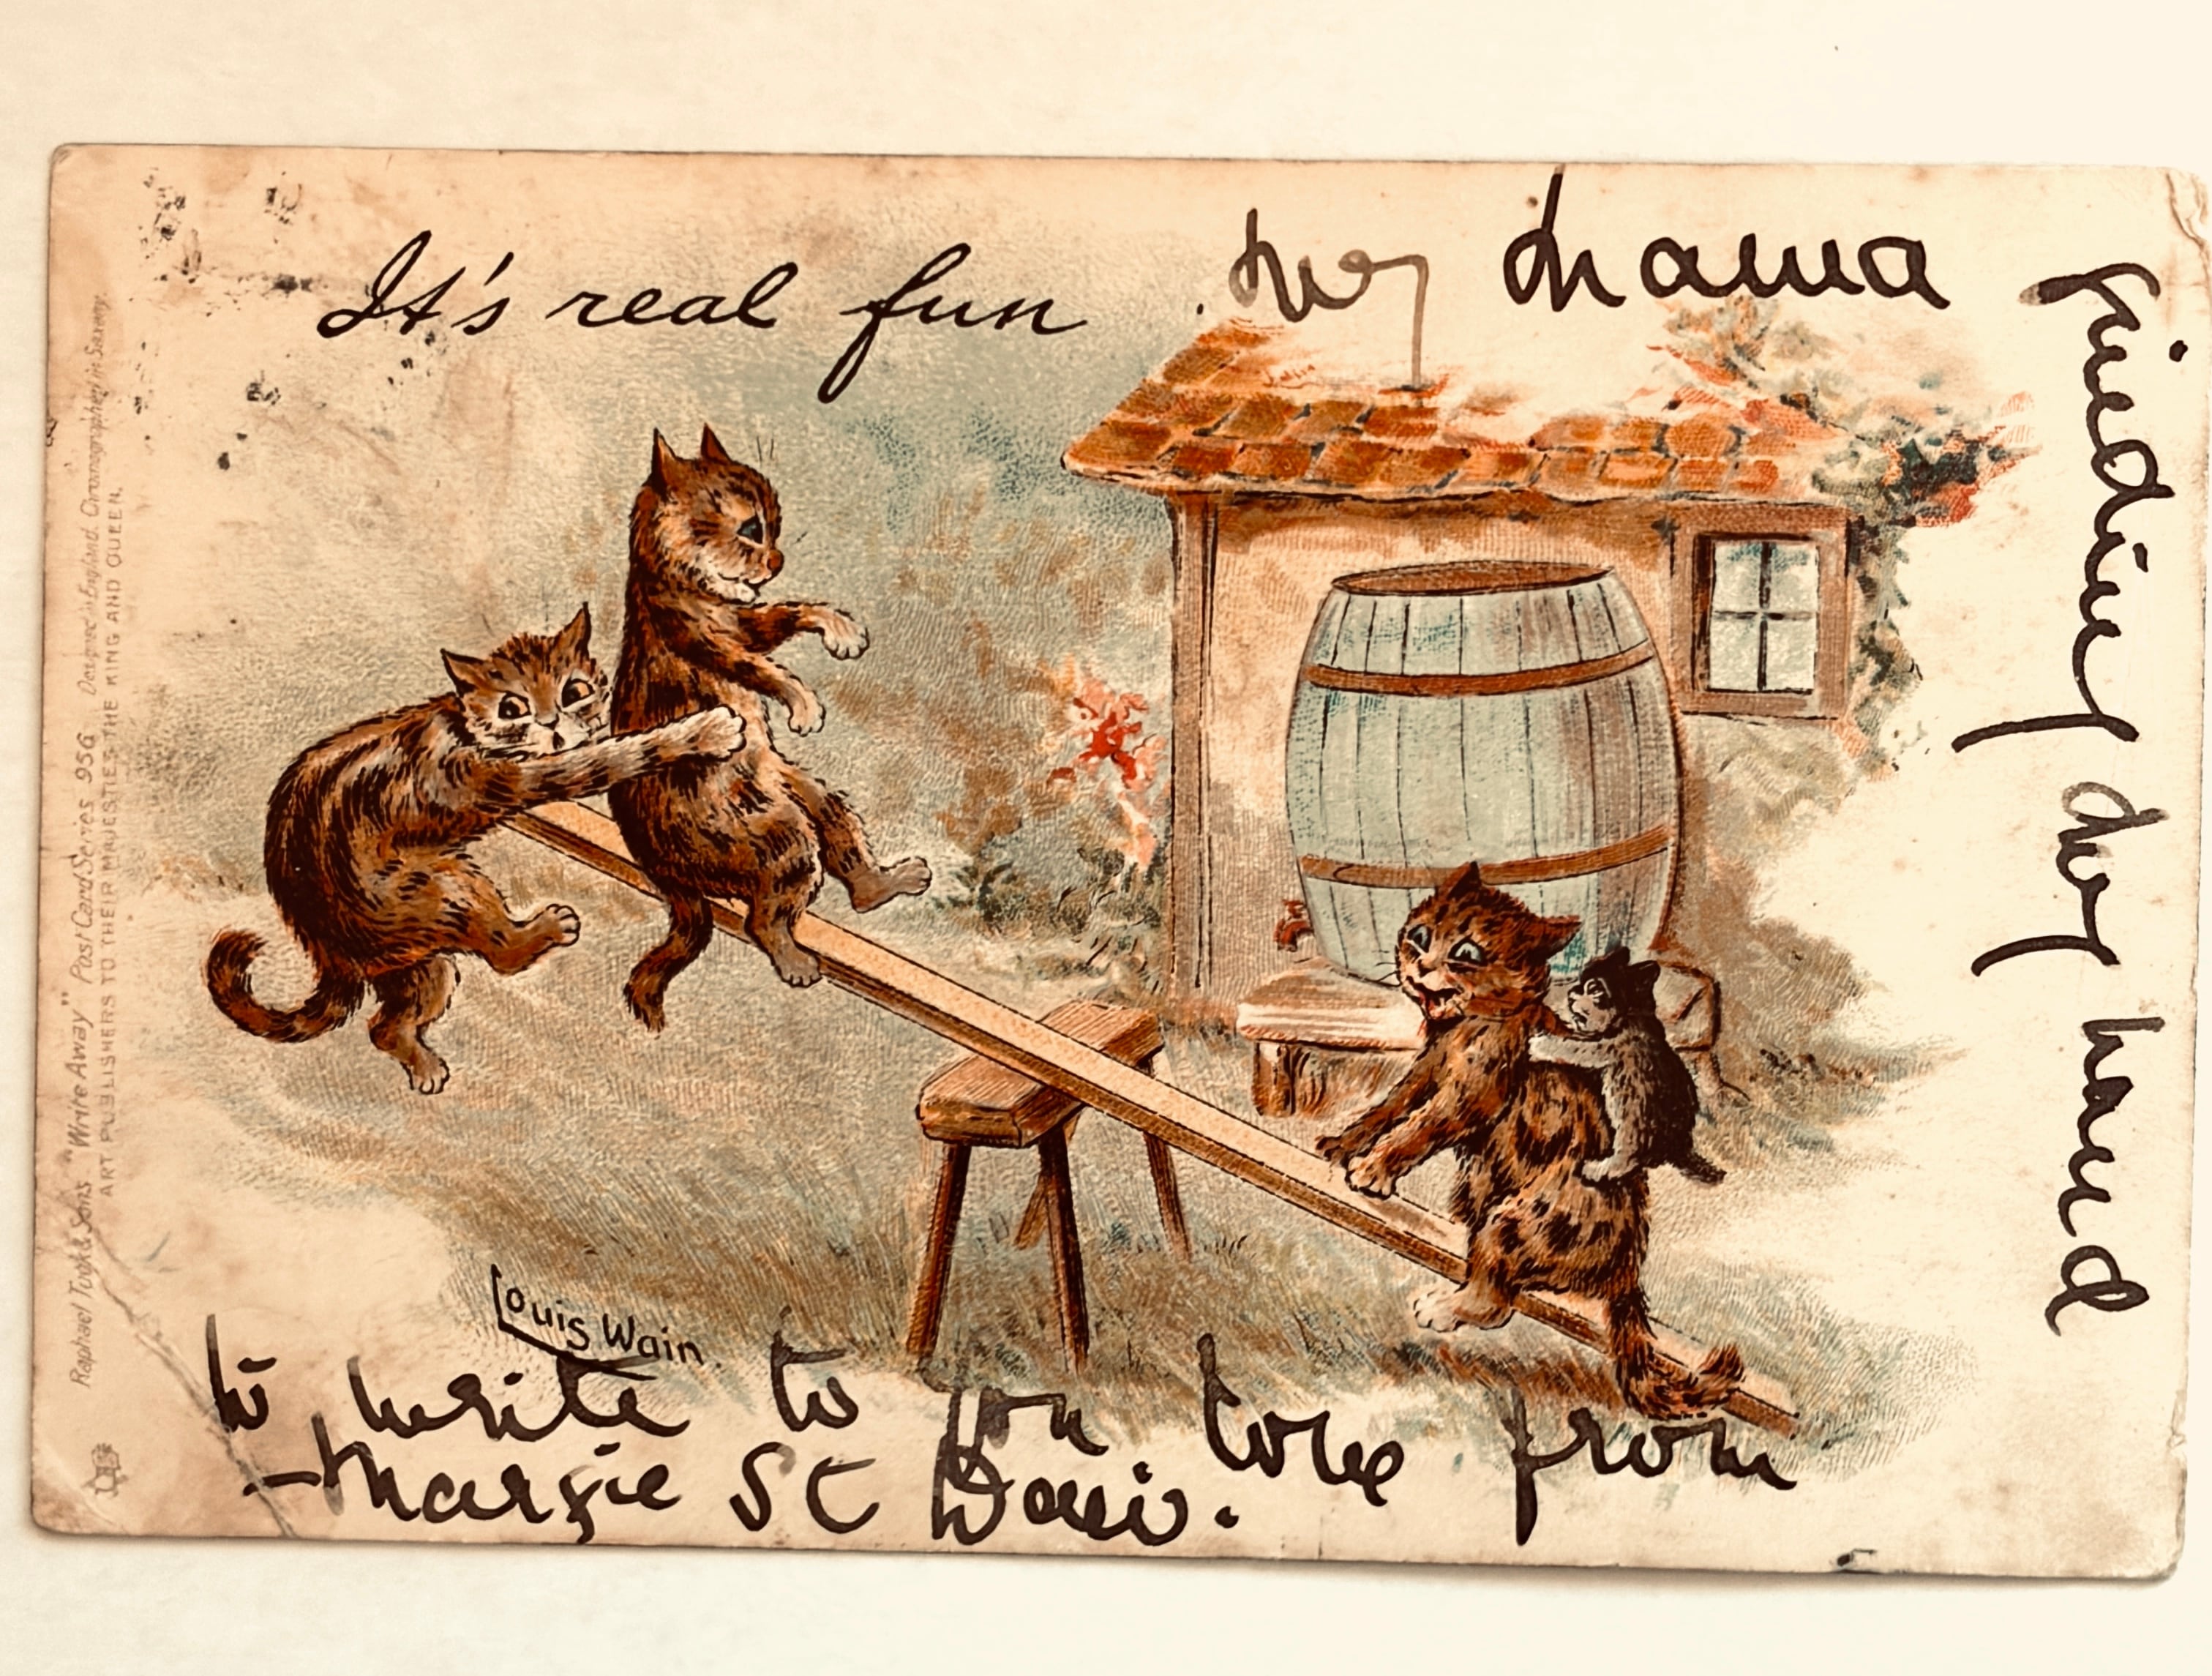 It's real fun
my Mama
guiding my hand
to write to you love from
Margie St Davis.
Louis Wain.
Raphael Tuck & Sons "Write Away" Post Card Series 956 Designed in England. Chromographed in Saxony.
ART PUBLISHERS TO THEIR MAJESTIES THE KING AND QUEEN.